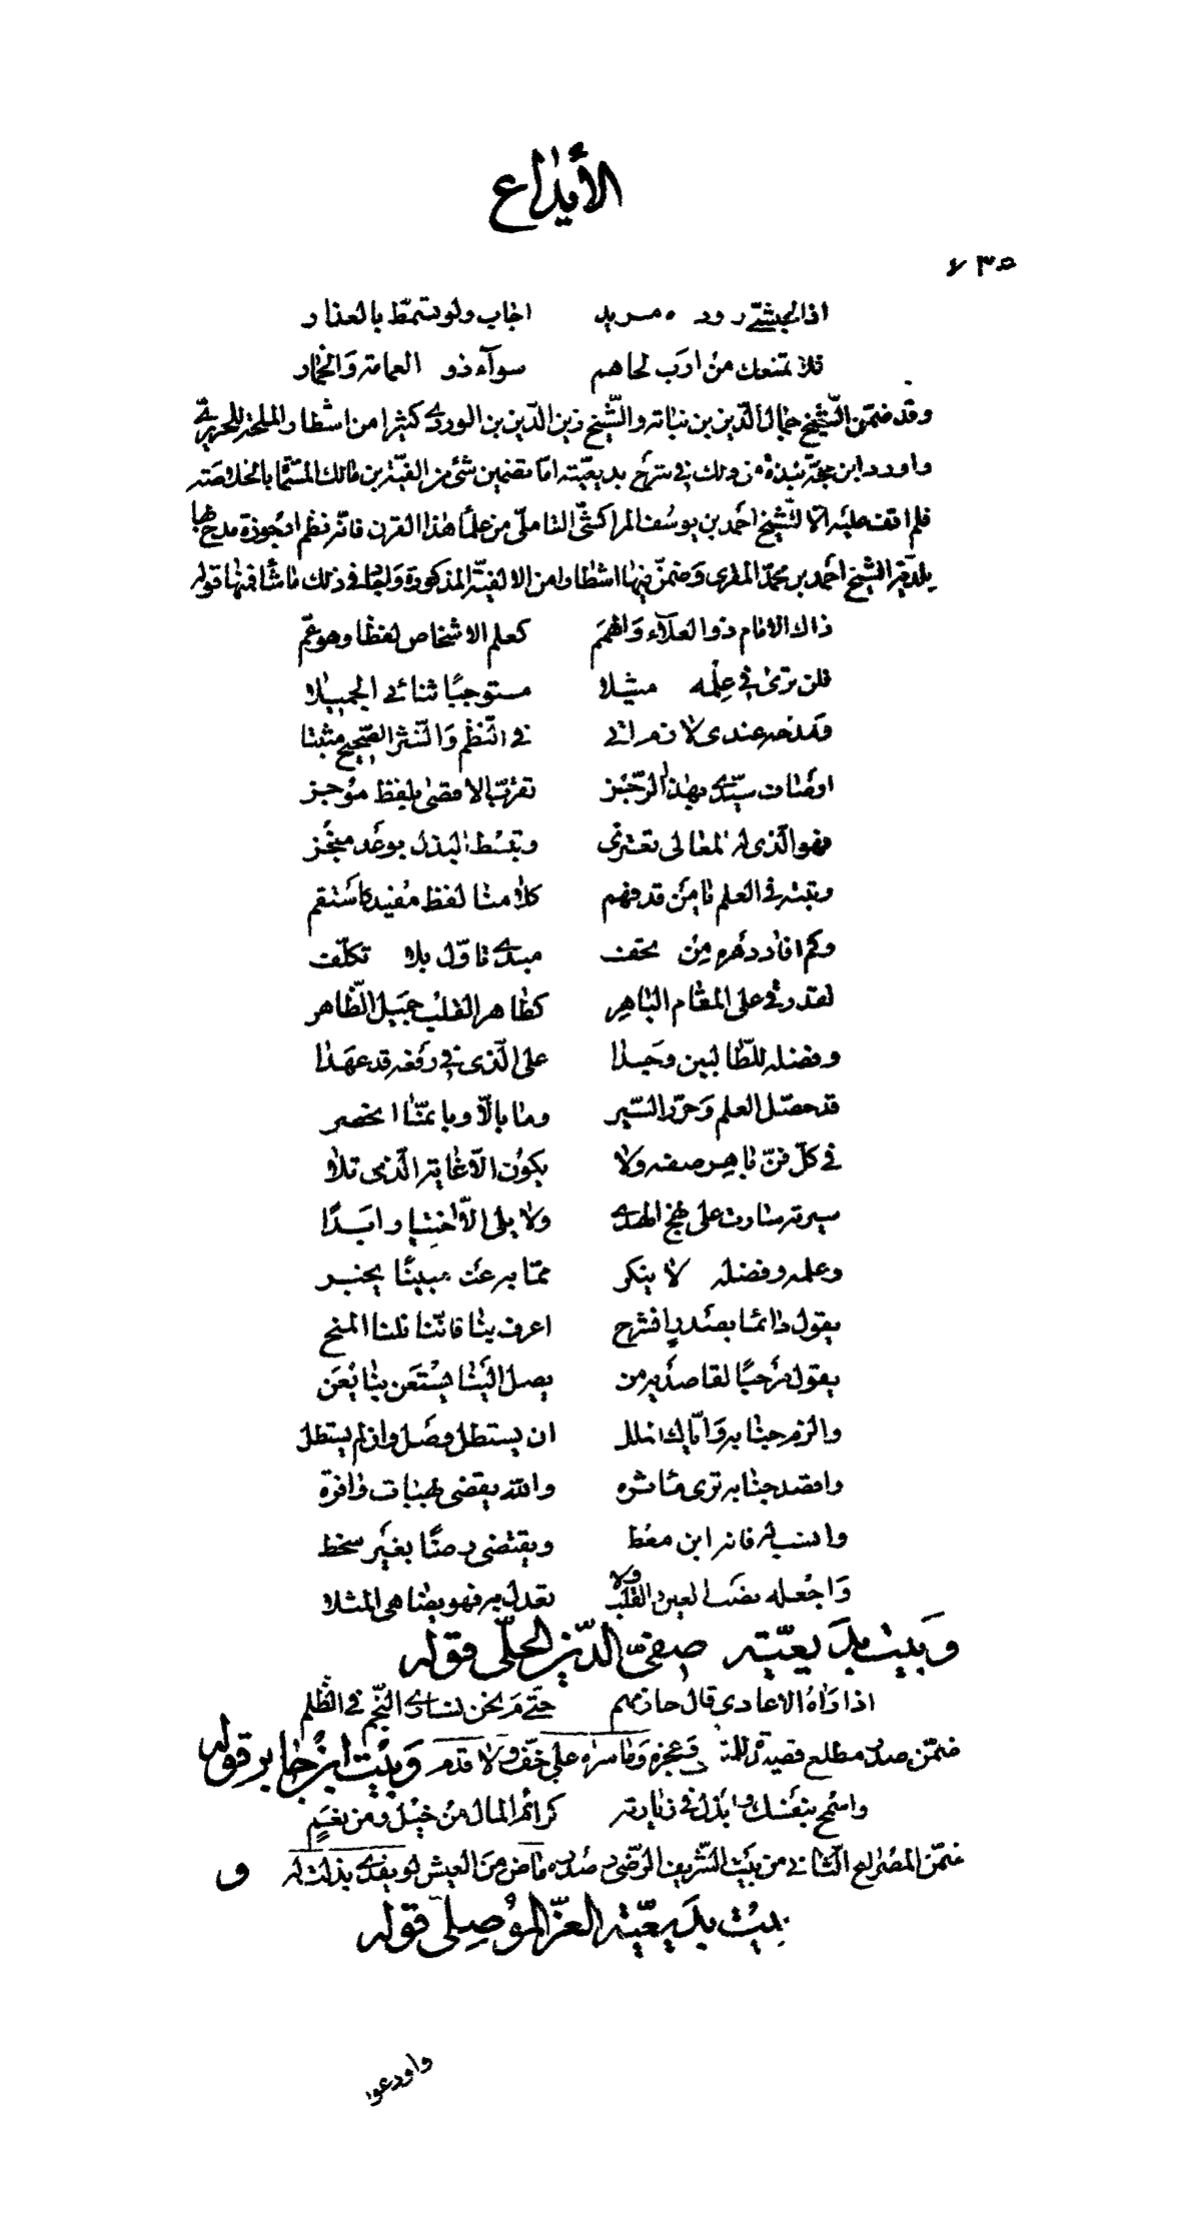 الأيداع
٧٣٥
اذا الجشتى رود ه مريد اجاب ولو تسمط بالعذار
فلا تمنعك من ارب لحاهم سوآء ذو العمامة والخمار
وقد ضمّن الشيخ جمال الدّين بن نباته والشّيخ زين الدّين بن الوردى كثيرا من اشطار الملحة للحريرىّ
واورد ابن حجّة نبذة من ذلك فى شرح بديعيّته امّا تضمين شئ من الفيّة بن مالك المسمّاة بالخلاصة
فلم اقف عليه الّا للشيخ احمد بن يوسف المراكشىّ التاملىّ من علمآ هذا القرن فانّه نظم ارجوزة مدح بها
بلديّه الشيخ احمد بن محمّد المقرى وضمّن فيها اشطاوا من الالفيّة المذكورة واجاد فى ذلك ماشآ فمنها قوله
ذاك الامام ذو العلآء والهمم كعلم الاشخاص لفظا وهو عمّ
فلن ترى فى علمه مثيلا مستوجبًا ثنائى الجميلا
ومدحه عندى لازم اتى فى النّظم والنّثر الصّحيح مثبتا
اوصاف سيّدى بهذا الرّجز تقرّب الاقصى بلفظ موجز
فهو الّذى له المعالى تعتزى وتبسط البذل بوعد منجز
رتبته فى العلم يا من قد فهم كلامنا لفظ مفيد كاستقم
وكم افاد دهره من تحف مبدى تاوّل بلا تكلّف
لقد رقى على المقام الباهر كطاهر القلب جميل الظّاهر
وفضله للطّالبين وجدا على الّذى فى رفعه قد عهدا
قد حصّل العلم وحرّر السّير وما بالّا او بانّما انحصر
فى كلّ فنّ ماهر صفه ولا يكون الّا غاية الّذى تلا
سيرته سارت على نهج الهدى ولا يلى الّا اختيارا ابدًا
وعلمه وفضله لا ينكر ممّا به عنه مبينًا يخبر
يقول دائما بصدر انشرح اعرف بنا فانّنا نلنا المنح
يقول مرحبًا لقاصديه من يصل الينا يستعن بنا يعن
والزم جنابه وايّاك الملل ان يستطل وصل وان لم يستطل
واقصد جنابه ترى مآثره والله يقضى بهبات وافرة
وانسب له فانه ابن معط ويقتضى رضًا بغير سخط
واجعله نصب العين والقلب ولا تعدل به فهو يضاهى المثلا
وبيت بديعيّته صفىّ الدّين الحلّى قوله
اذا رآه الاعادى قال حازمهم حتّى م نحن نسارى النّجم فى الظّلم
ضمّن صدر مطلع قصيدة وعجزه وما سراه على خفّ ولا قدم وبيت ابن جابر قوله
واسمح بنفسك وابذل فى زيارته كرائم المال من خيل ومن نعم
ضمّن المصراع الثّانى من بيت الشّريف الرّضى وصدره ماض من العيش لو يفدى بذلت له و
بيت بديعيّة العزّ الموصلى قوله
واودعوا